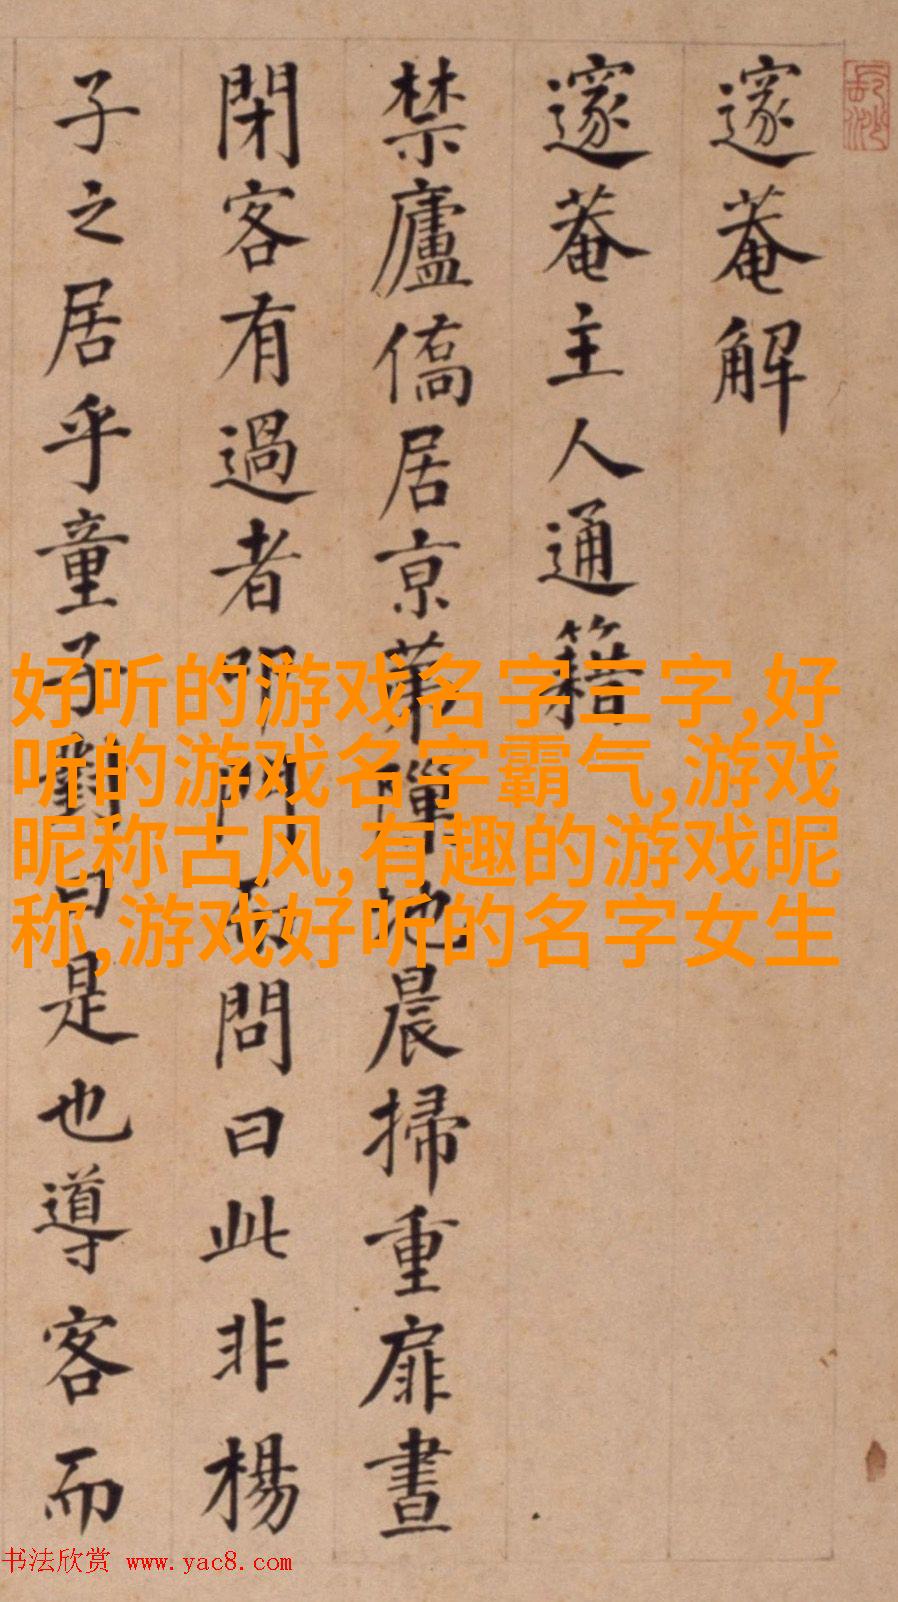 邃菴解
邃菴主人通籍
禁廬僑居京苐地晨掃重扉晝
閉客有過者叩門而問曰此非楊
子之居乎童子對曰是也導客而
好听的游戏名字三字,好
听的游戏名字霸气,游戏
昵称古风,有趣的游戏昵
称,游戏好听的名字女生
书法欣赏 www.yac8.com